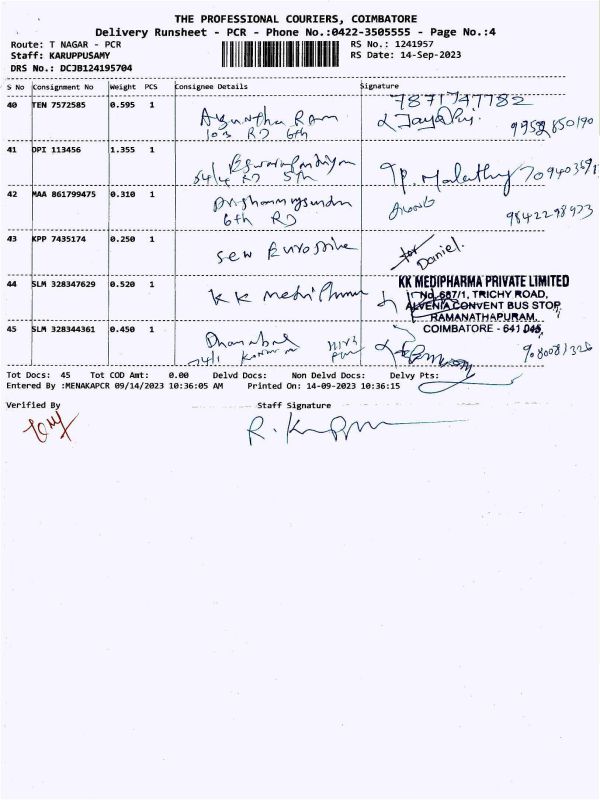 THE PROFESSIONAL COURIERS, COIMBATORE
Delivery Runsheet - PCR - Phone No.:0422-3505555 - Page No.:4
Route: T NAGAR - PCR RS No.: 1241957
Staff: KARUPPUSAMY RS Date: 14-Sep-2023
DRS No.: DCJB124195704
S No Consignment No Weight PCS Consignee Details Signature
40 TEN 7572585 0.595 1 Ram 7871747782
103 RD 6th 9952850190
41 DPI 113456 1.355 1
54/4 RD 5th P. Malathy
42 MAA 861799475 0.310 1
6th RD 9842298973
43 KPP 7435174 0.250 1 Sew Eurodrive for Daniel.
44 SLM 328347629 0.520 1 KK Medi Pharma KK MEDIPHARMA PRIVATE LIMITED
No. 687/1, TRICHY ROAD,
ALVENIA CONVENT BUS STOP,
RAMANATHAPURAM,
COIMBATORE - 641 045.
45 SLM 328344361 0.450 1 Dhanabal
74/1
Tot Docs: 45 Tot COD Amt: 0.00 Delvd Docs: Non Delvd Docs: Delvy Pts:
Entered By :MENAKAPCR 09/14/2023 10:36:05 AM Printed On: 14-09-2023 10:36:15
Verified By Staff Signature